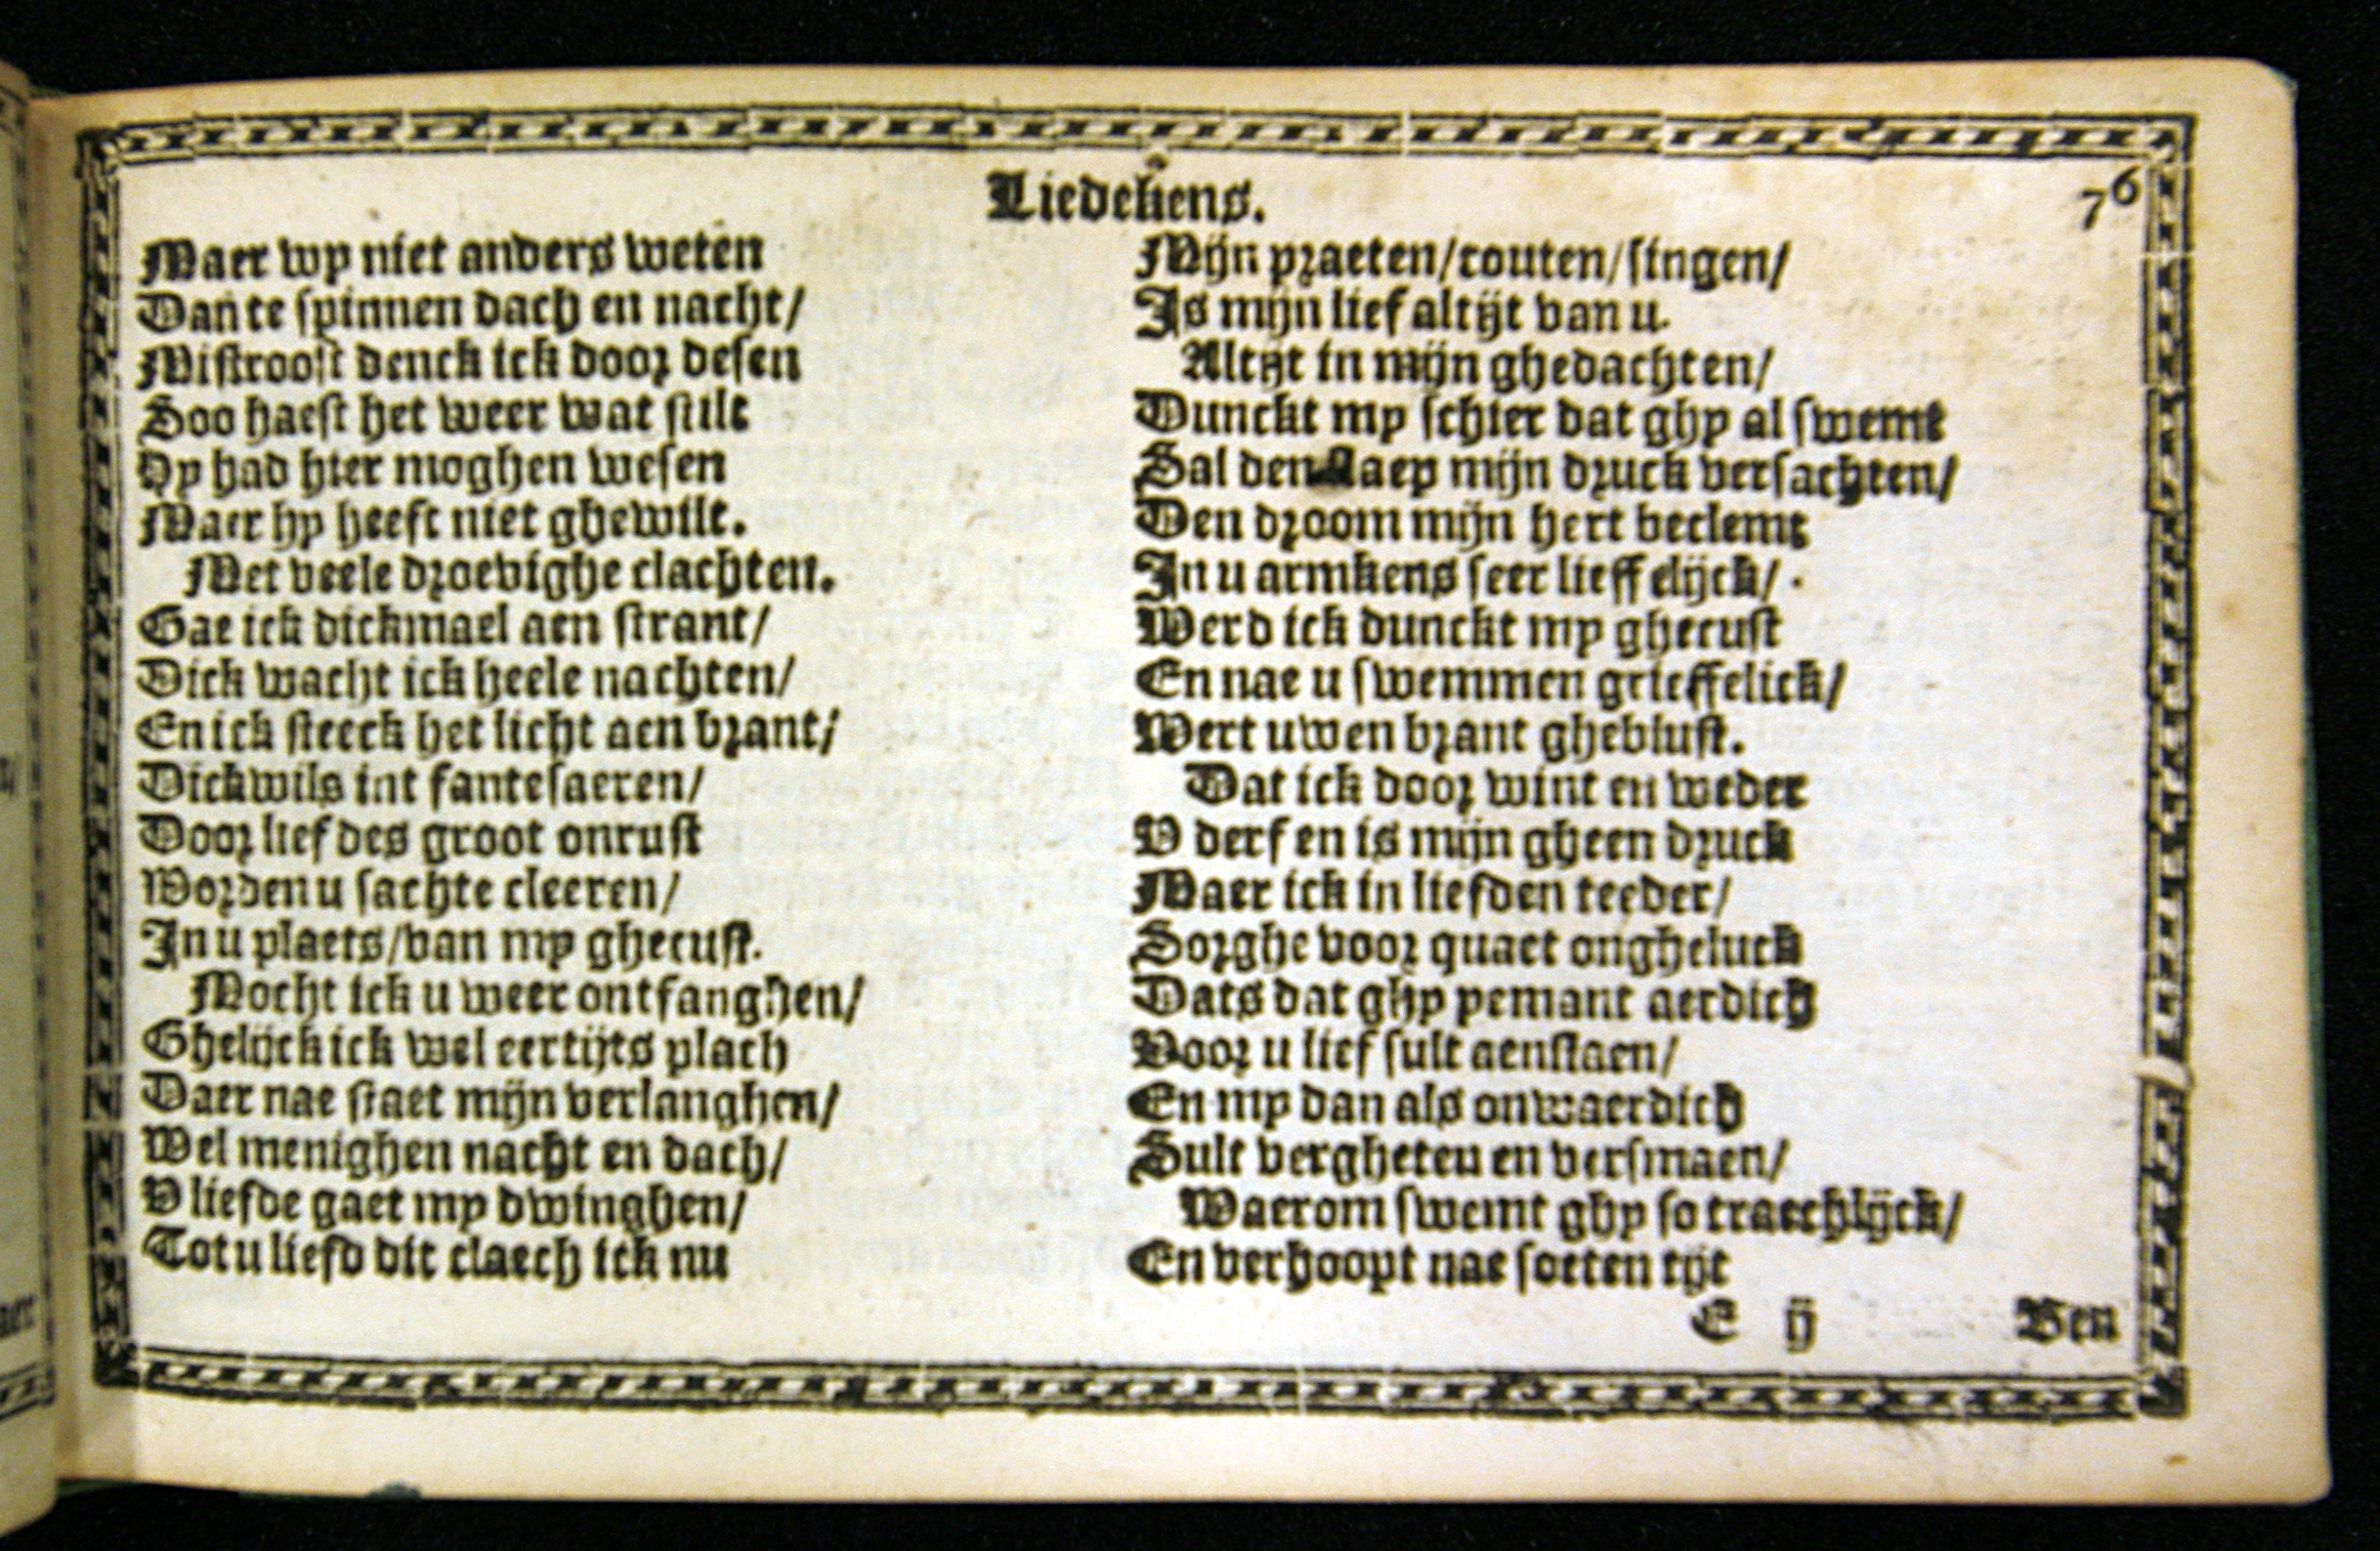 Liedekens.
76
Maer wy niet anders weten
Dan te spinnen dach en nacht/
Mistroost denck ick door desen
Soo haest het weer wat stilt
Hy had hier moghen wesen
Maer hy heeft niet ghewilt.
Met veele droevighe clachten.
Gae ick dickmael aen strant/
Dick wacht ick heele nachten/
En ick steeck het licht aen brant/
Dickwils int fantesaeren/
Door liefdes groot onrust
Worden u sachte cleeren/
In u plaets/van my ghecust.
Mocht ick u weer ontfanghen/
Ghelijck ick wel eertijts plach
Daer nae staet mijn verlanghen/
Wel menighen nacht en dach/
V liefde gaet my dwinghen/
Tot u liefd dit claech ick nu
Mijn praeten/couten/singen/
Is mijn lief altijt van u.
Altijt in mijn ghedachten/
Dunckt my schier dat ghy al swemt
Sal den slaep mijn druck versachten/
Den droom mijn hert beclemt
In u armkens seer lieffelijck/
Werd ick dunckt my ghecust
En nae u swemmen grieffelick/
Wert uwen brant gheblust.
Dat ick door wint en weder
V derf en is mijn gheen druck
Maer ick in liefden teeder/
Sorghe voor quaet ongheluck
Dats dat ghy yemant aerdich
Voor u lief sult aenstaen/
En my dan als onwaerdich
Sult vergheteu en versmaen/
Waerom swemt ghy so traechlijck/
En verhoopt nae soeten tijt
E ij
Ben